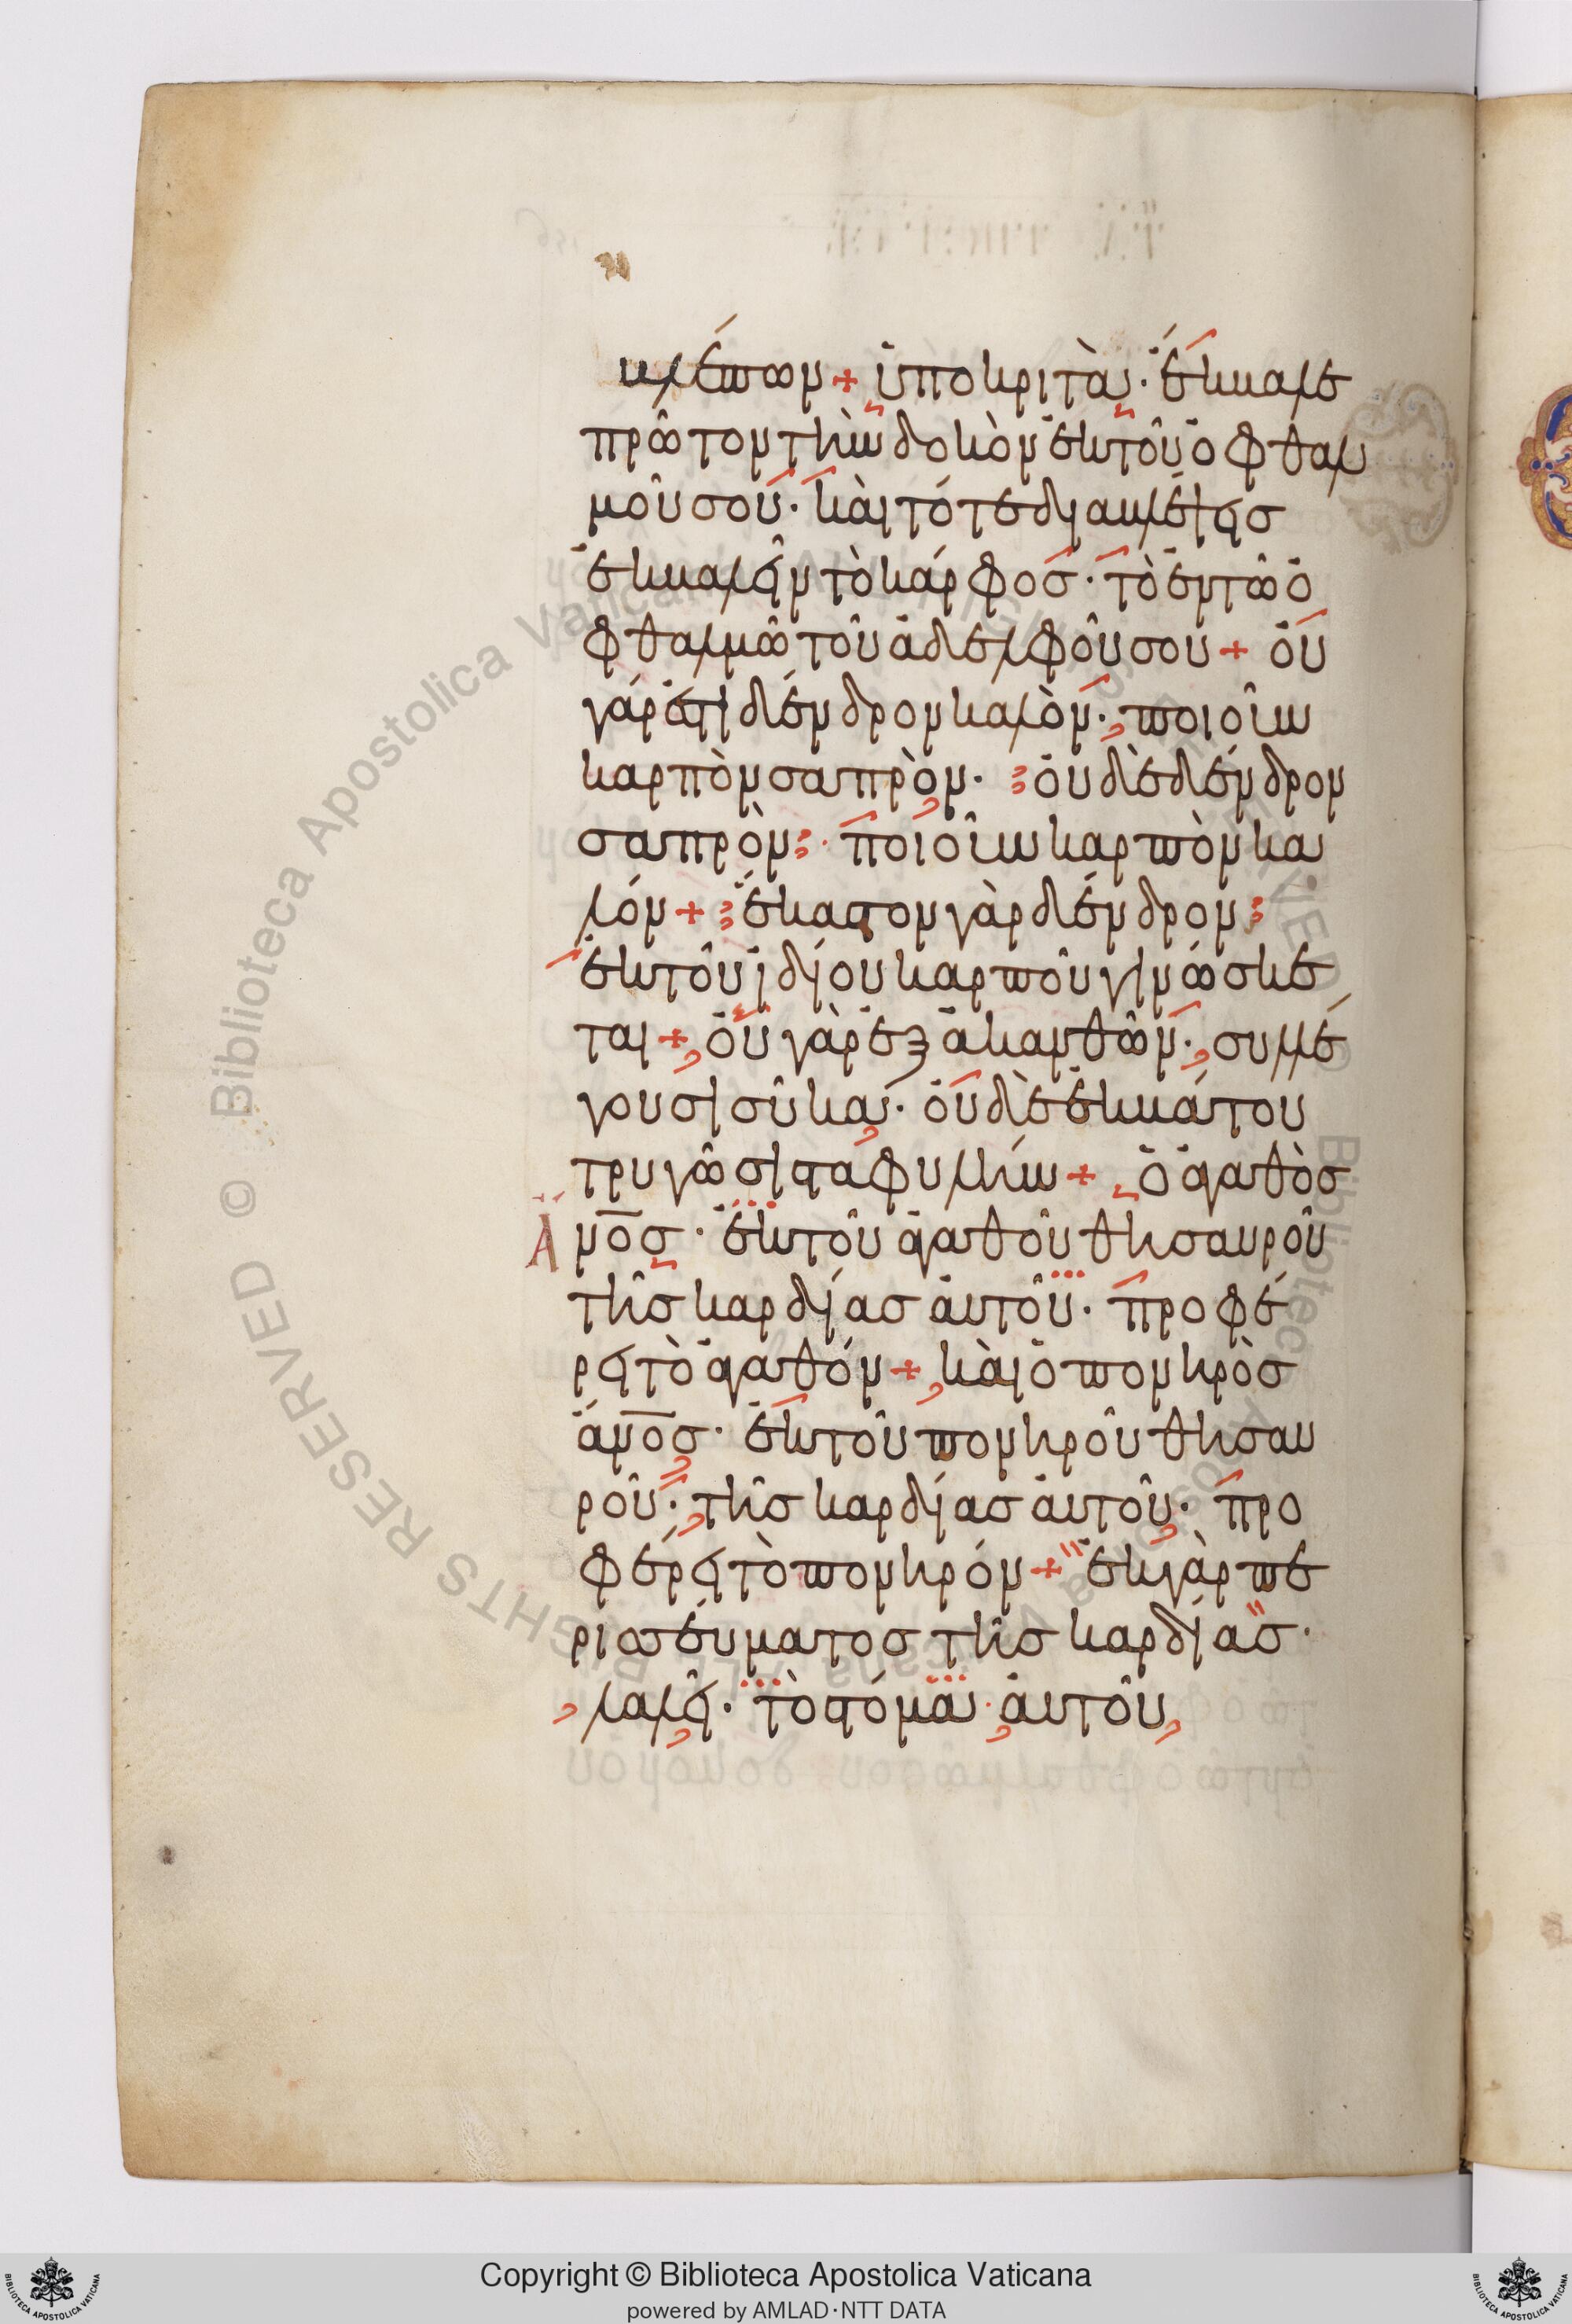 βλέπων + ὑποκριτὰ· ἔκβαλε
πρῶτον τὴν δοκὸν ἐκ τοῦ ὀφθαλ
μοῦ σου· καὶ τότε διαβλέψεις
ἐκβαλεῖν τὸ κάρφος· τὸ ἐν τῶ ὀ
φθαλμῶ τοῦ ἀδελφοῦ σου + οὐ
γάρ ἐστι δένδρον καλὸν· ποιοῦν
καρπὸν σαπρὸν· οὐδὲ δένδρον
σαπρὸν· ποιοῦν καρπὸν κα
λόν + ἕκαστον γὰρ δένδρον
ἐκ τοῦ ἰδίου καρποῦ γινώσκε
ται + οὐ γὰρ ἐξ ἀκανθῶν· συλλέ
γουσι σῦκα· οὐδὲ ἐκ βάτου
τρυγῶσι σταφυλήν + ὁ ἀγαθὸς
ἄνος· ἐκ τοῦ ἀγαθοῦ θησαυροῦ
τῆς καρδίας αὐτοῦ· προφέ
ρει τὸ ἀγαθόν + καὶ ὁ πονηρὸς
ἄνος· ἐκ τοῦ πονηροῦ θησαυ
ροῦ· τῆς καρδίας αὐτοῦ· προ
φέρει τὸ πονηρόν + ἐκ γὰρ πε
ρισσεύματος τῆς καρδίας·
λαλεῖ· τὸ στόμα αὐτοῦ
Copyright © Biblioteca Apostolica Vaticana
powered by AMLAD·NTT DATA
BIBLIOTECA APOSTOLICA VATICANA
BIBLIOTECA APOSTOLICA VATICANA
© Biblioteca Apostolica Vaticana ALL RIGHTS RESERVED